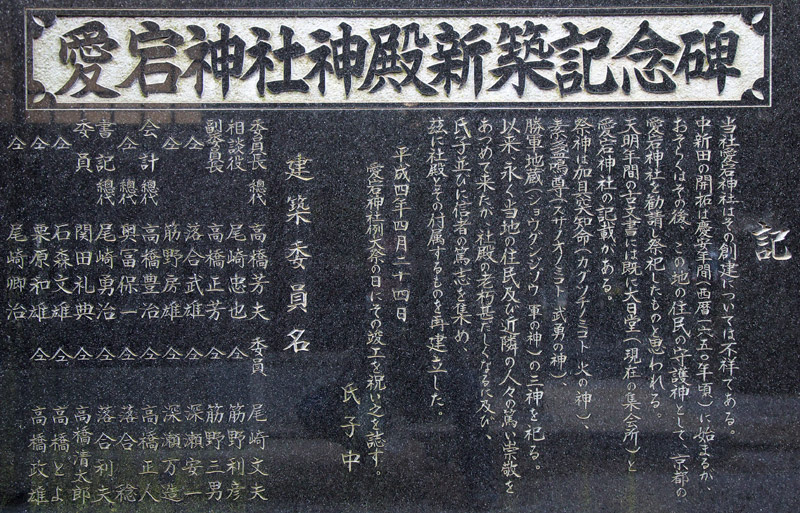 愛宕神社神殿新築記念碑
記
当社愛宕神社はその創建については不祥である。
中新田の開拓は慶安年間(西暦一六五〇年頃)に始まるが、
おそらくはその後、この地の住民の守護神として、京都の
愛宕神社を勧請し祭祀したものと思われる。
天明年間の古文書には既に大日堂(現在の集会所)と
愛宕神社の記載がある。
祭神は加具突知命(カグツチノミコト 火の神)、
素盞嗚尊(スサノオノミコト 武勇の神)、
勝軍地蔵(ショウグンジゾウ 軍の神)の三神を祀る。
以来、永く当地の住民及び近隣の人々の篤い崇敬を
あつめて来たが、社殿の老朽甚だしくなるに及び、
氏子並びに信者の篤志を集め、
茲に社殿とその付属するものを再建立した。
平成四年四月二十四日
愛宕神社例大祭の日にその竣工を祝い之を誌す。
氏子中
建築委員名
委員長 総代 高橋芳夫 委員 尾崎文夫
相談役 尾崎忠也 仝 筋野利彦
副委員長 高橋正芳 仝 筋野三男
仝 落合武雄 仝 深瀬安一
仝 筋野房雄 仝 深瀬万造
会計 総代 高橋豊治 仝 高橋正人
仝 総代 興冨保一 仝 落合稔
書記 総代 尾崎勇治 仝 落合利夫
委員 関田礼典 仝 高橋清太郎
仝 石森文雄 仝 高橋とよ
仝 栗原和雄 仝 高橋政雄
仝 尾崎卿治